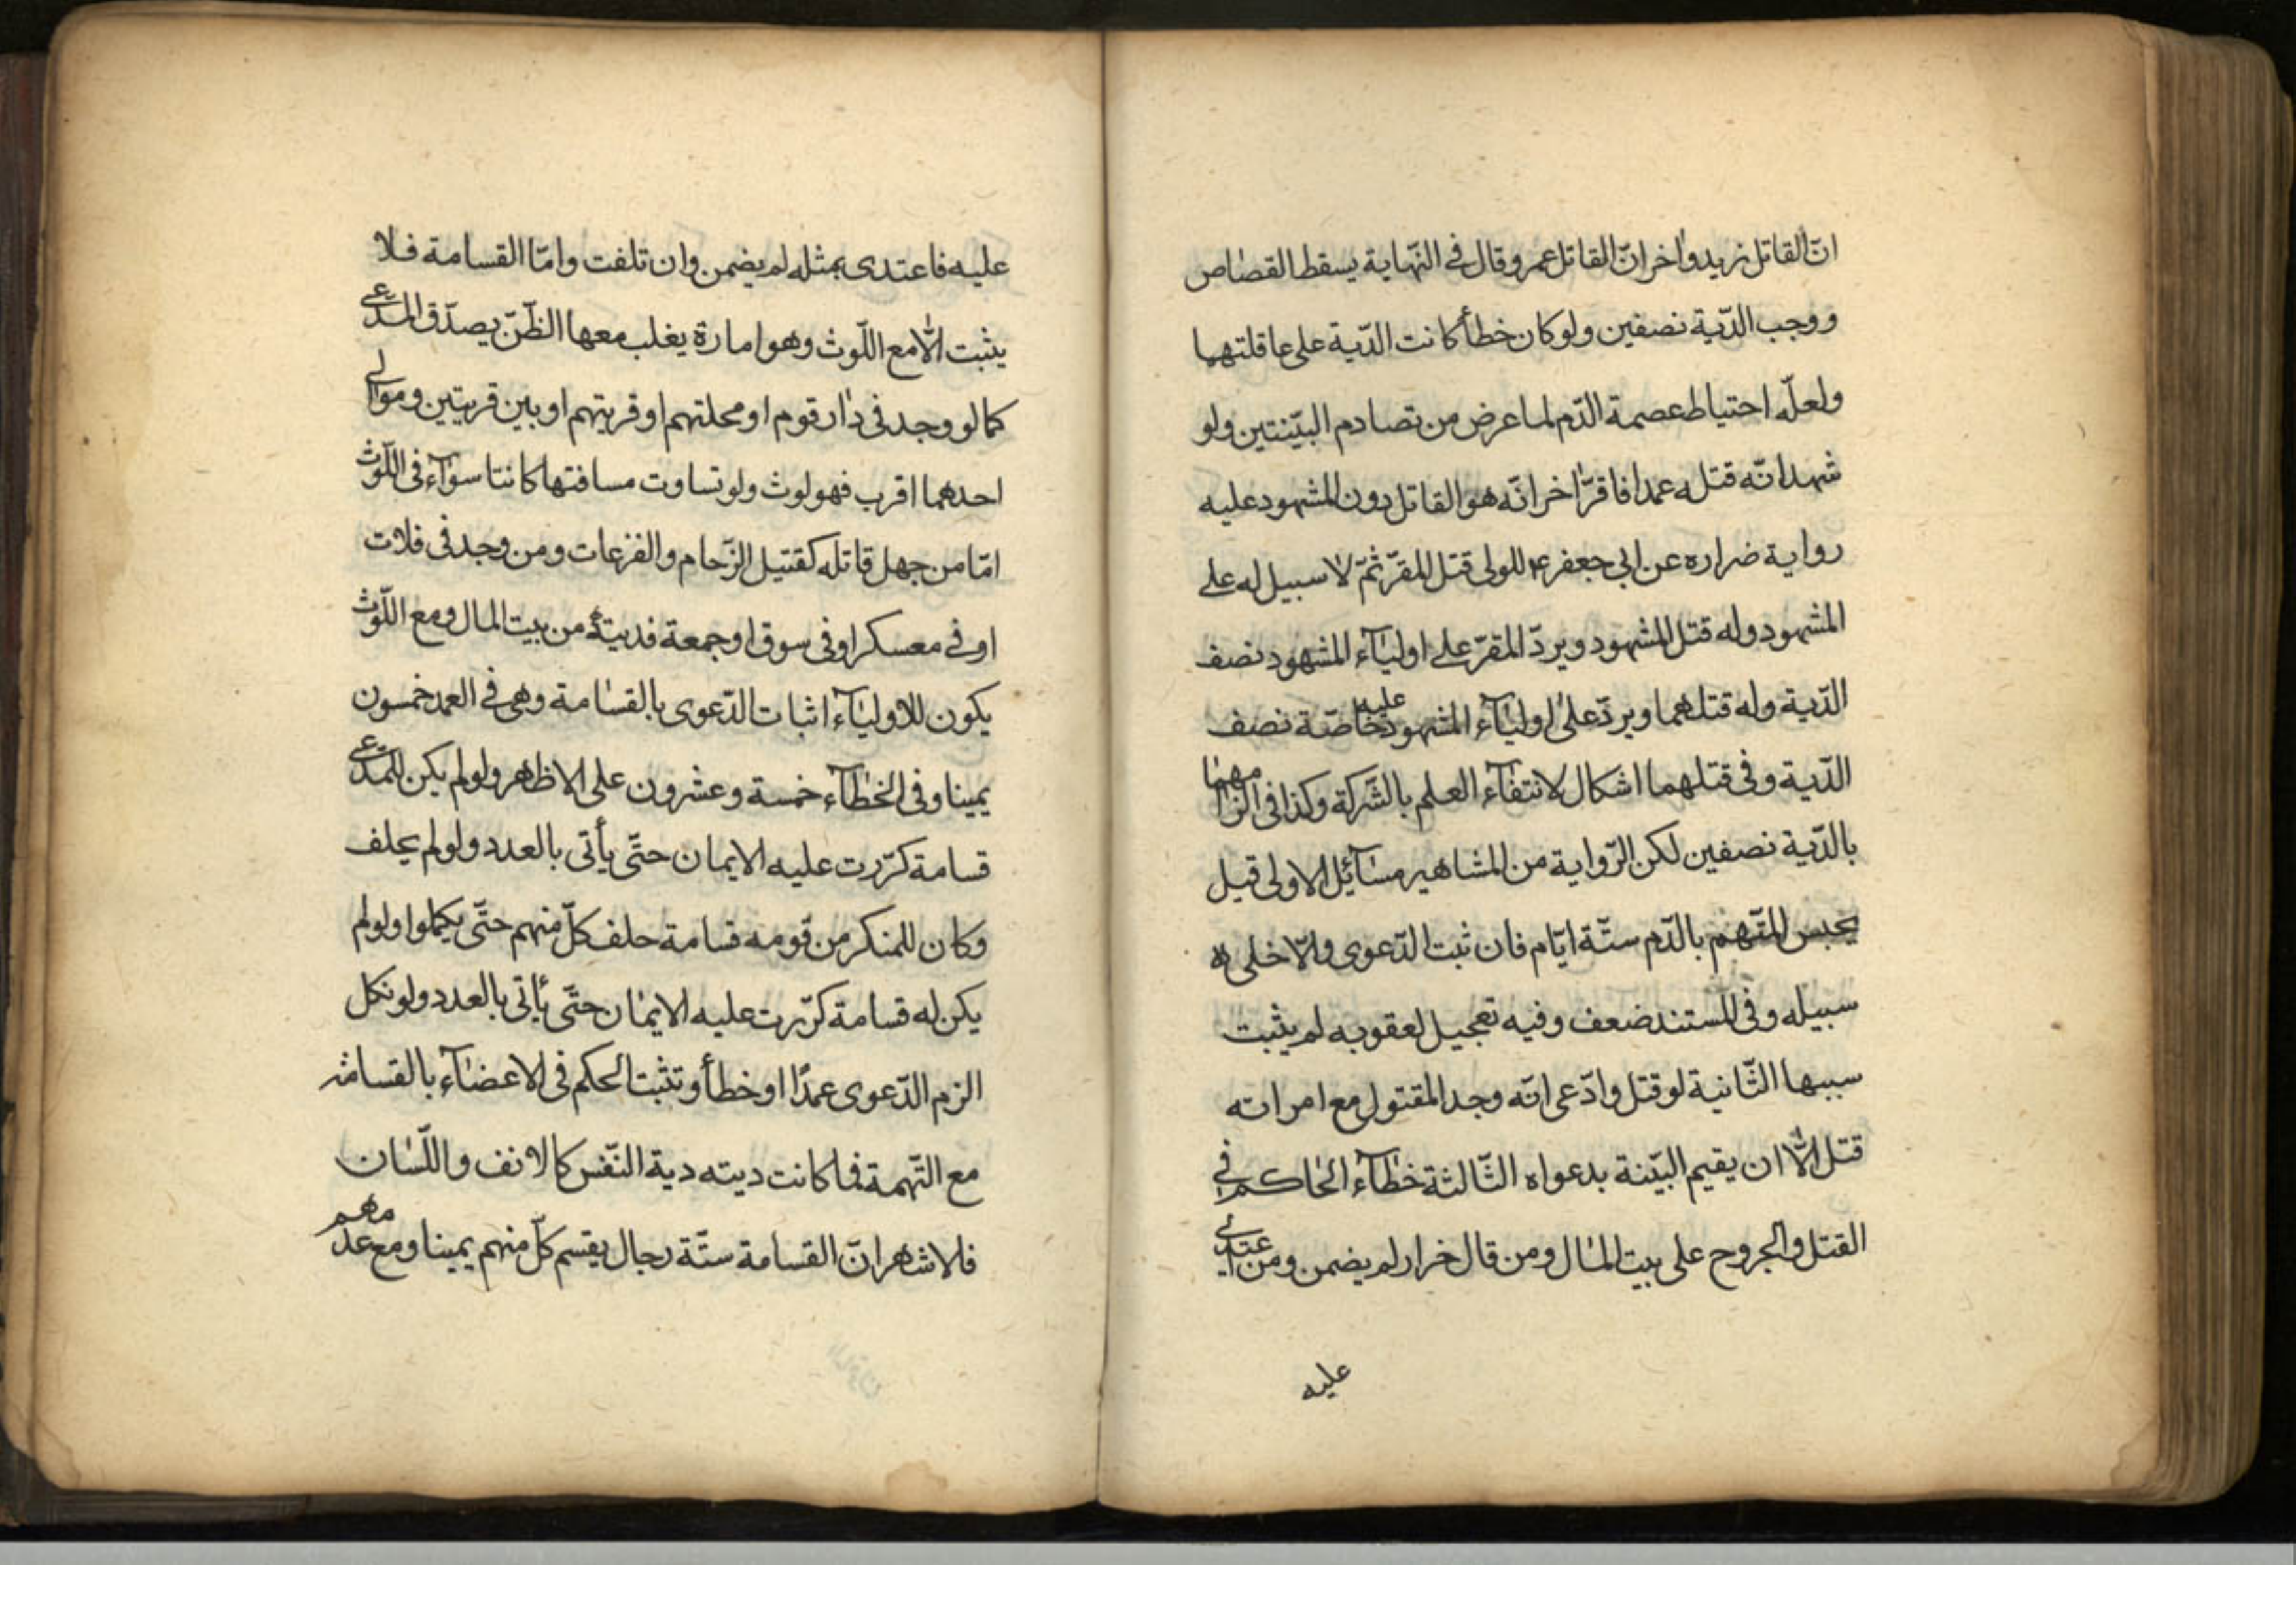 انّ القاتل زيد واٰخر انّ القاتل عمر وقال فى النّهاية يسقط القصٰاص
ووجب الدّية نصفين ولو كان خطأ كانت الدّية على عاقلتهما
ولعلّه احتياط عصمة الدّم لما عرض من تصادم البيّنتين ولو
شهدا انّه قتله عمدا فاقرّ اٰخر انّه هو القاتل دون المشهود عليه
رواية ضراره عن ابى جعفر ع للولى قتل المقرّ ثمّ لا سبيل له على
المشهود وله قتل المشهود ويردّ المقرّ على اوليٰآء المشهود نصف
الدّية وله قتلهما ويردّ على اوليٰآء المشهود عليه خاصّة نصف
الدّية وفى قتلهما اشكال لانتفٰآء العلم بالشّركة وكذا فى الزامهمٰا
بالدّية نصفين لكن الرّواية من المشاهير مسٰآئل الاولى قيل
يحبس المتّهم بالدّم ستّة ايّام فان ثبت الدّعوى والّا خلى ه
سبيله وفى المستند ضعف وفيه تعجيل لعقوبه لم يثبت
سببها الثّانية لو قتل وادّعى انّه وجد المقتول مع امراته
قتل الّٰا ان يقيم البيّنة بدعواه الثّالثة خطٰآء الحٰاكم فى
القتل والجروح على بيت المٰال ومن قال خرار لم يضمن ومن اعتدى
عليه
عليه فاعتدى بمثله لم يضمن وان تلفت وامّا القسامة فلا
يثبت الّٰا مع اللّوث وهو امارة يغلب معها الظّنّ يصدّق المدّعى
كما لو وجد فى دٰار قوم او محلتهم او قريتهم او بين قريتين وموالى
احدهما اقرب فهو لوث ولو تساوت مسافتها كانتا سوٰآء فى اللّوث
امّا من جهل قاتله كقتيل الزّحام والفزعات ومن وجد فى فلات
او فى معسكر او فى سوق او جمعة فديتهُ من بيت المال ومع اللّوث
يكون للاوليٰآء اثبات الدّعوى بالقسٰامة وهى فى العمد خمسون
يمينا وفى الخطٰآء خمسة وعشرون على الاظاهر ولو لم يكن للمدّعى
قسامة كرّرت عليه الايمان حتّى يأتى بالعدد ولو لم يحلف
وكان للمنكر من قومه قسامة حلف كلّ منهم حتّى يكملوا ولو لم
يكن له قسامة كرّرت عليه الايمٰان حتّى يأتى بالعدد ولو نكل
الزم الدّعوى عمدًا او خطأ وتثبت الحكم فى الاعضٰآء بالقسامة
مع التّهمة فما كانت ديته دية النّفس كالانف واللّسٰان
فلاشهر انّ القسامة ستّة رجال يقسم كلّ منهم يمينا ومع عدمهم